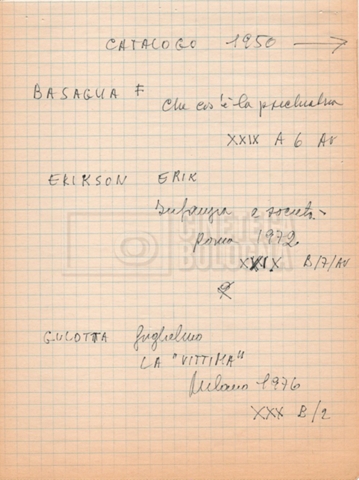 CATALOGO 1950 →
BASAGLIA F
Che cos'è la psichiatria
XXIX A 6 AV
ERIKSON ERIK
Infanzia e società
Roma 1972
XXIX B/7/AV
GULOTTA Guglielmo
LA "VITTIMA"
Milano 1976
XXX B/2